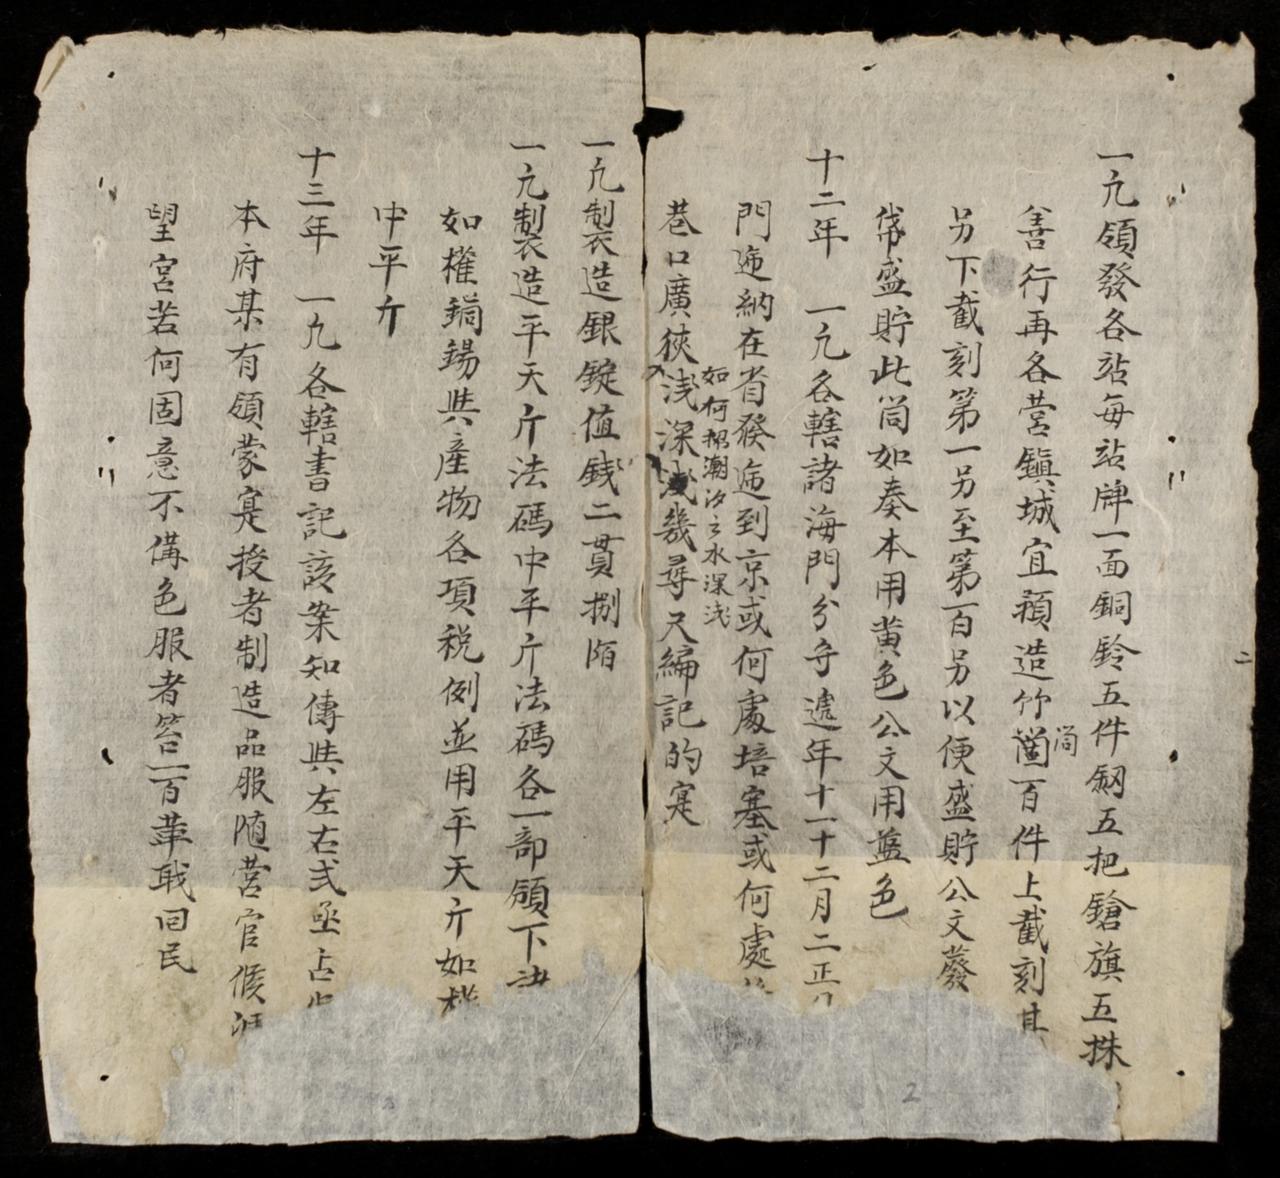 一凢領發各站每站牌一面銅鈴五件釼五把鎗旗五株
善行再各营鎮城宜預造竹箇一百件上截刻其
筒
另下截刻第一另至第一百另以便盛貯公文發
帒盛貯此筒如奏本用黄色公文用藍色
十二年 一凢各轄諸海門分守遞年十一十二月二正
門迤納在省發迤到京或何處培塞或何處
如何招潮汐之水深浅
巷口廣狹浅深浅幾尋尺編記的寔
一凢製造銀錠值銭二貫捌陌
一凢製造平天斤法碼中平斤法碼各一部頒下
如権銅錫與產物各項税例並用平天斤如
中平斤
十三年 一凢各轄書記該案知傳與左右弍丞占
本府某有領蒙寔授者制造品服随营官候
望宮若何固意不備色服者笞一百革戝囬民
二
2